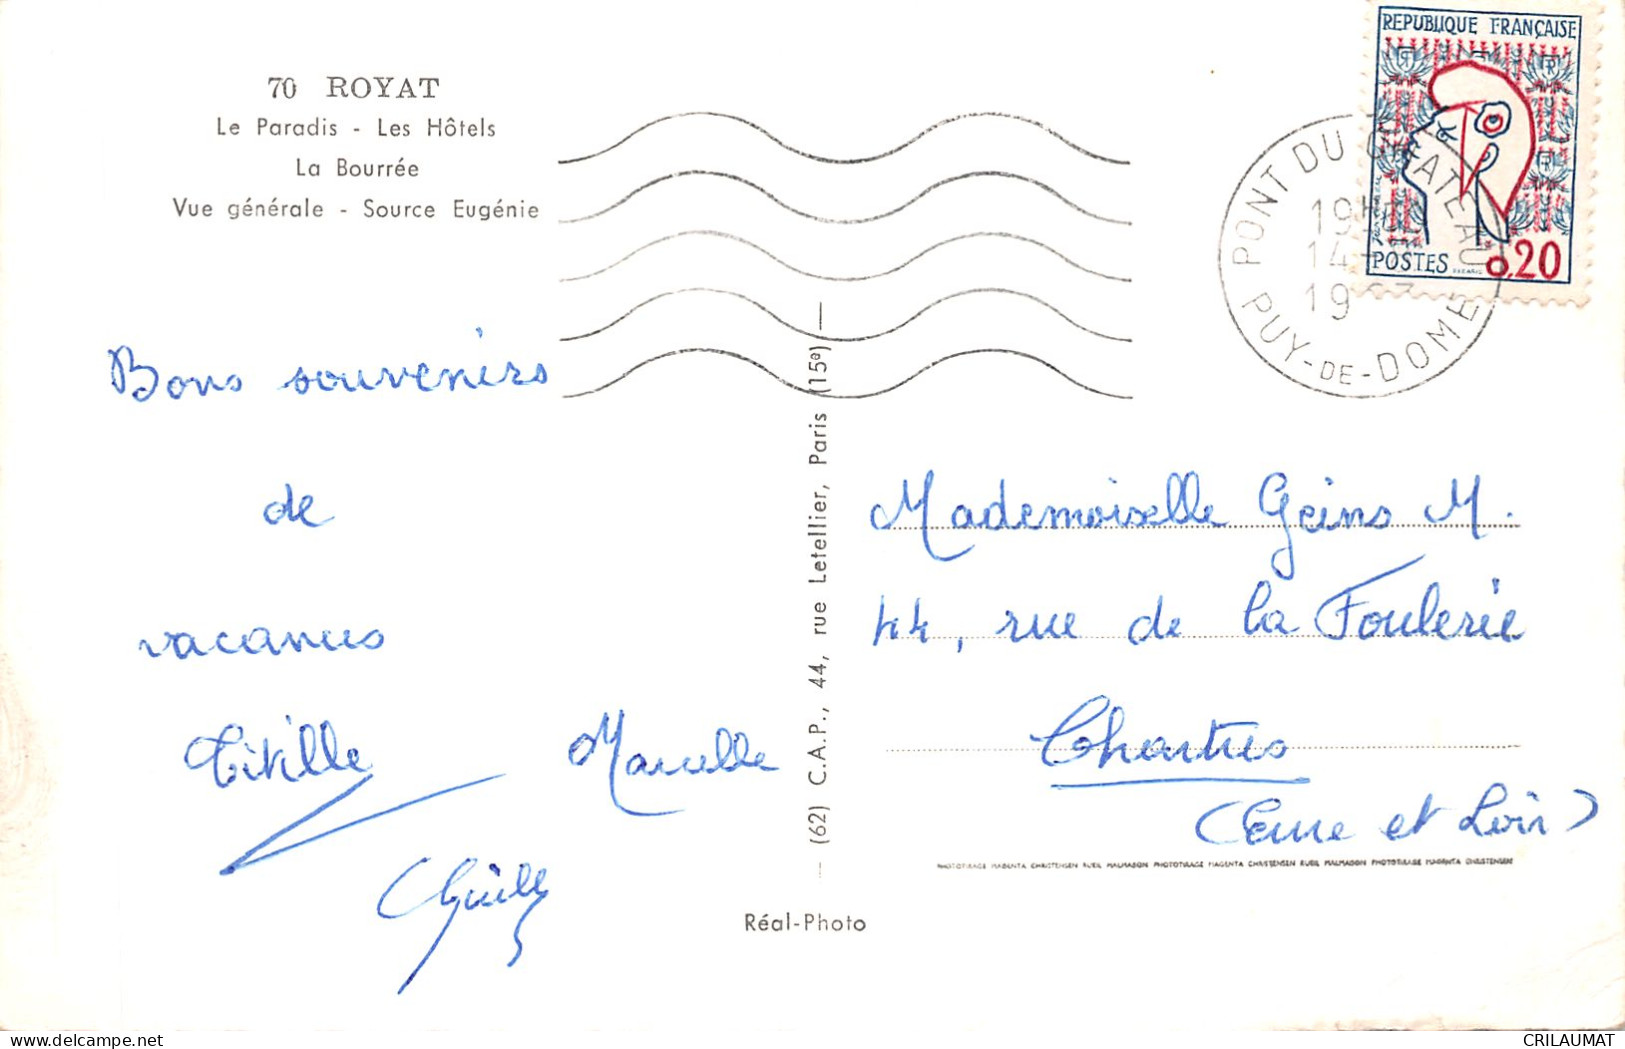 70 ROYAT
Le Paradis - Les Hôtels
La Bourrée
Vue générale - Source Eugénie
Bons souvenirs
de
vacances
Marcelle
— (62) C.A.P., 44, rue Letellier, Paris (15e) —
Réal-Photo
REPUBLIQUE FRANÇAISE
POSTES 0,20
PONT DU CHATEAU
19H
14-
19
PUY-DE-DOME
Mademoiselle Geins M.
44, rue de la Foulerie
Chartres
(Eure et Loir)
PHOTOTIRAGE MAGENTA CHRISTENSEN RUEIL MALMAISON PHOTOTIRAGE MAGENTA CHRISTENSEN RUEIL MALMAISON PHOTOTIRAGE MAGENTA CHRISTENSEN
CRILAUMAT